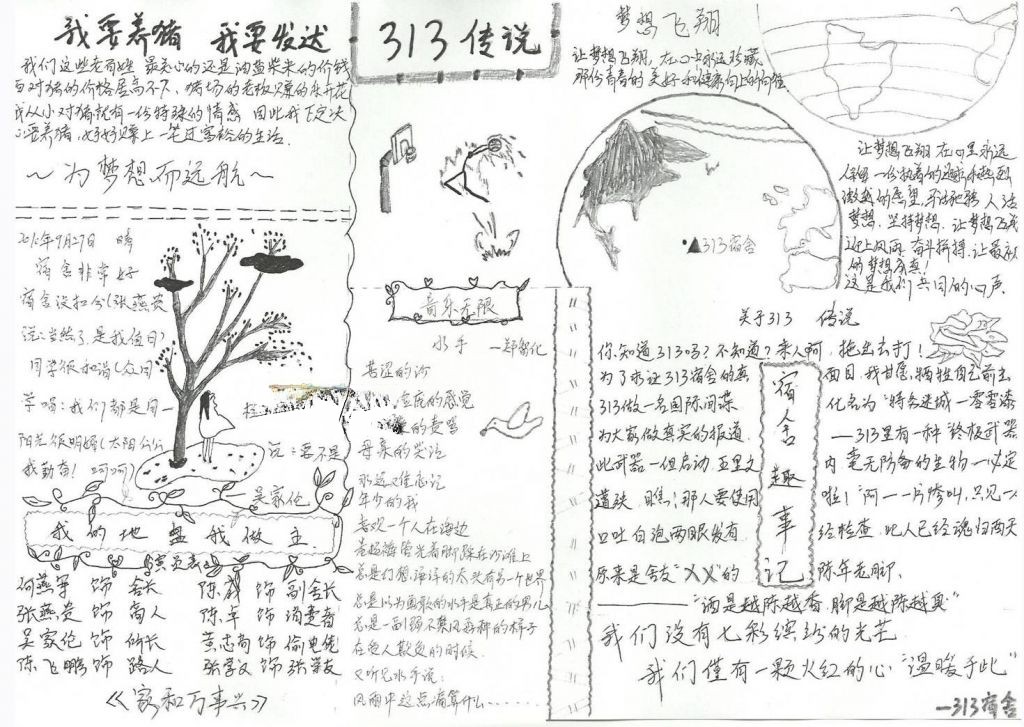 我要养猪 我要发达
我们这些老百姓 最关心的还是油盐柴米的价钱
而对猪的价格居高不下、猪场的老板算的乐开花
我从小对猪就有一份特殊的情感 因此我下定决
心要养猪,好好算上一笔过富裕的生活.
~为梦想而远航~
9月27日 晴
宿舍非常好
宿舍没扣分(张燕贵
说:当然了是我值日)
同学很和谐(众同
学唱:我们都是同一
阳光很明媚(太阳公公
我勤奋! 呵呵)
说:要不是
—吴家伦
我的地盘我做主
演员表
何燕军 饰 舍长
陈 饰 副舍长
张燕贵 饰 商人
陈卓 饰 消费者
吴家伦 饰 所长
黄志尚 饰 偷电佬
陈飞鹏 饰 路人
张学友 饰 张学友
《家和万事兴》
313传说
音乐无限
水手 —郑智化
苦涩的沙
的感觉
母亲的哭泣
永远难忘记
年少的我
喜欢一个人在海边
卷起裤管光着脚踩在沙滩上
总是幻想海洋的尽头有另一个世界
总是以为勇敢的水手是真正的男儿
总是一副弱不禁风孬种的样子
在受人欺负的时候
又听见水手说:
风雨中这点痛算什么······
梦想飞翔
让梦想飞翔,在心中永远珍藏
那份青春的美好和健康向上的向往.
▲313宿舍
让梦想飞翔 在心里永远
保留一份执着的追求和
激越的愿望,
梦想.坚持梦想.让梦想飞
迎上风雨.奋斗拼搏.让最初
的梦想成真!
这是我们共同的心声.
关于313 传说
你知道313吗?不知道?来人啊,拖出去打!
为了求证313宿舍的真面目,我甘愿牺牲自己前去
313做一名国际间谍 化名为"特务迷城—零零漆
为大家做真实的报道. —313里有一种"终极武器
此武器一但启动 五里之内毫无防备的生物一必定
遭殃.瞧!那人要使用啦!"阿——"一片惨叫,只见一
口吐白泡 两眼发 经检查.此人已经魂归两天
原来是舍友"XX"的 陈年老脚.
————"酒是越陈越香,脚是越陈越臭"
宿舍趣事记
我们没有七彩缤纷的光芒
我们仅有一颗火红的心"温暖于此"
—313宿舍